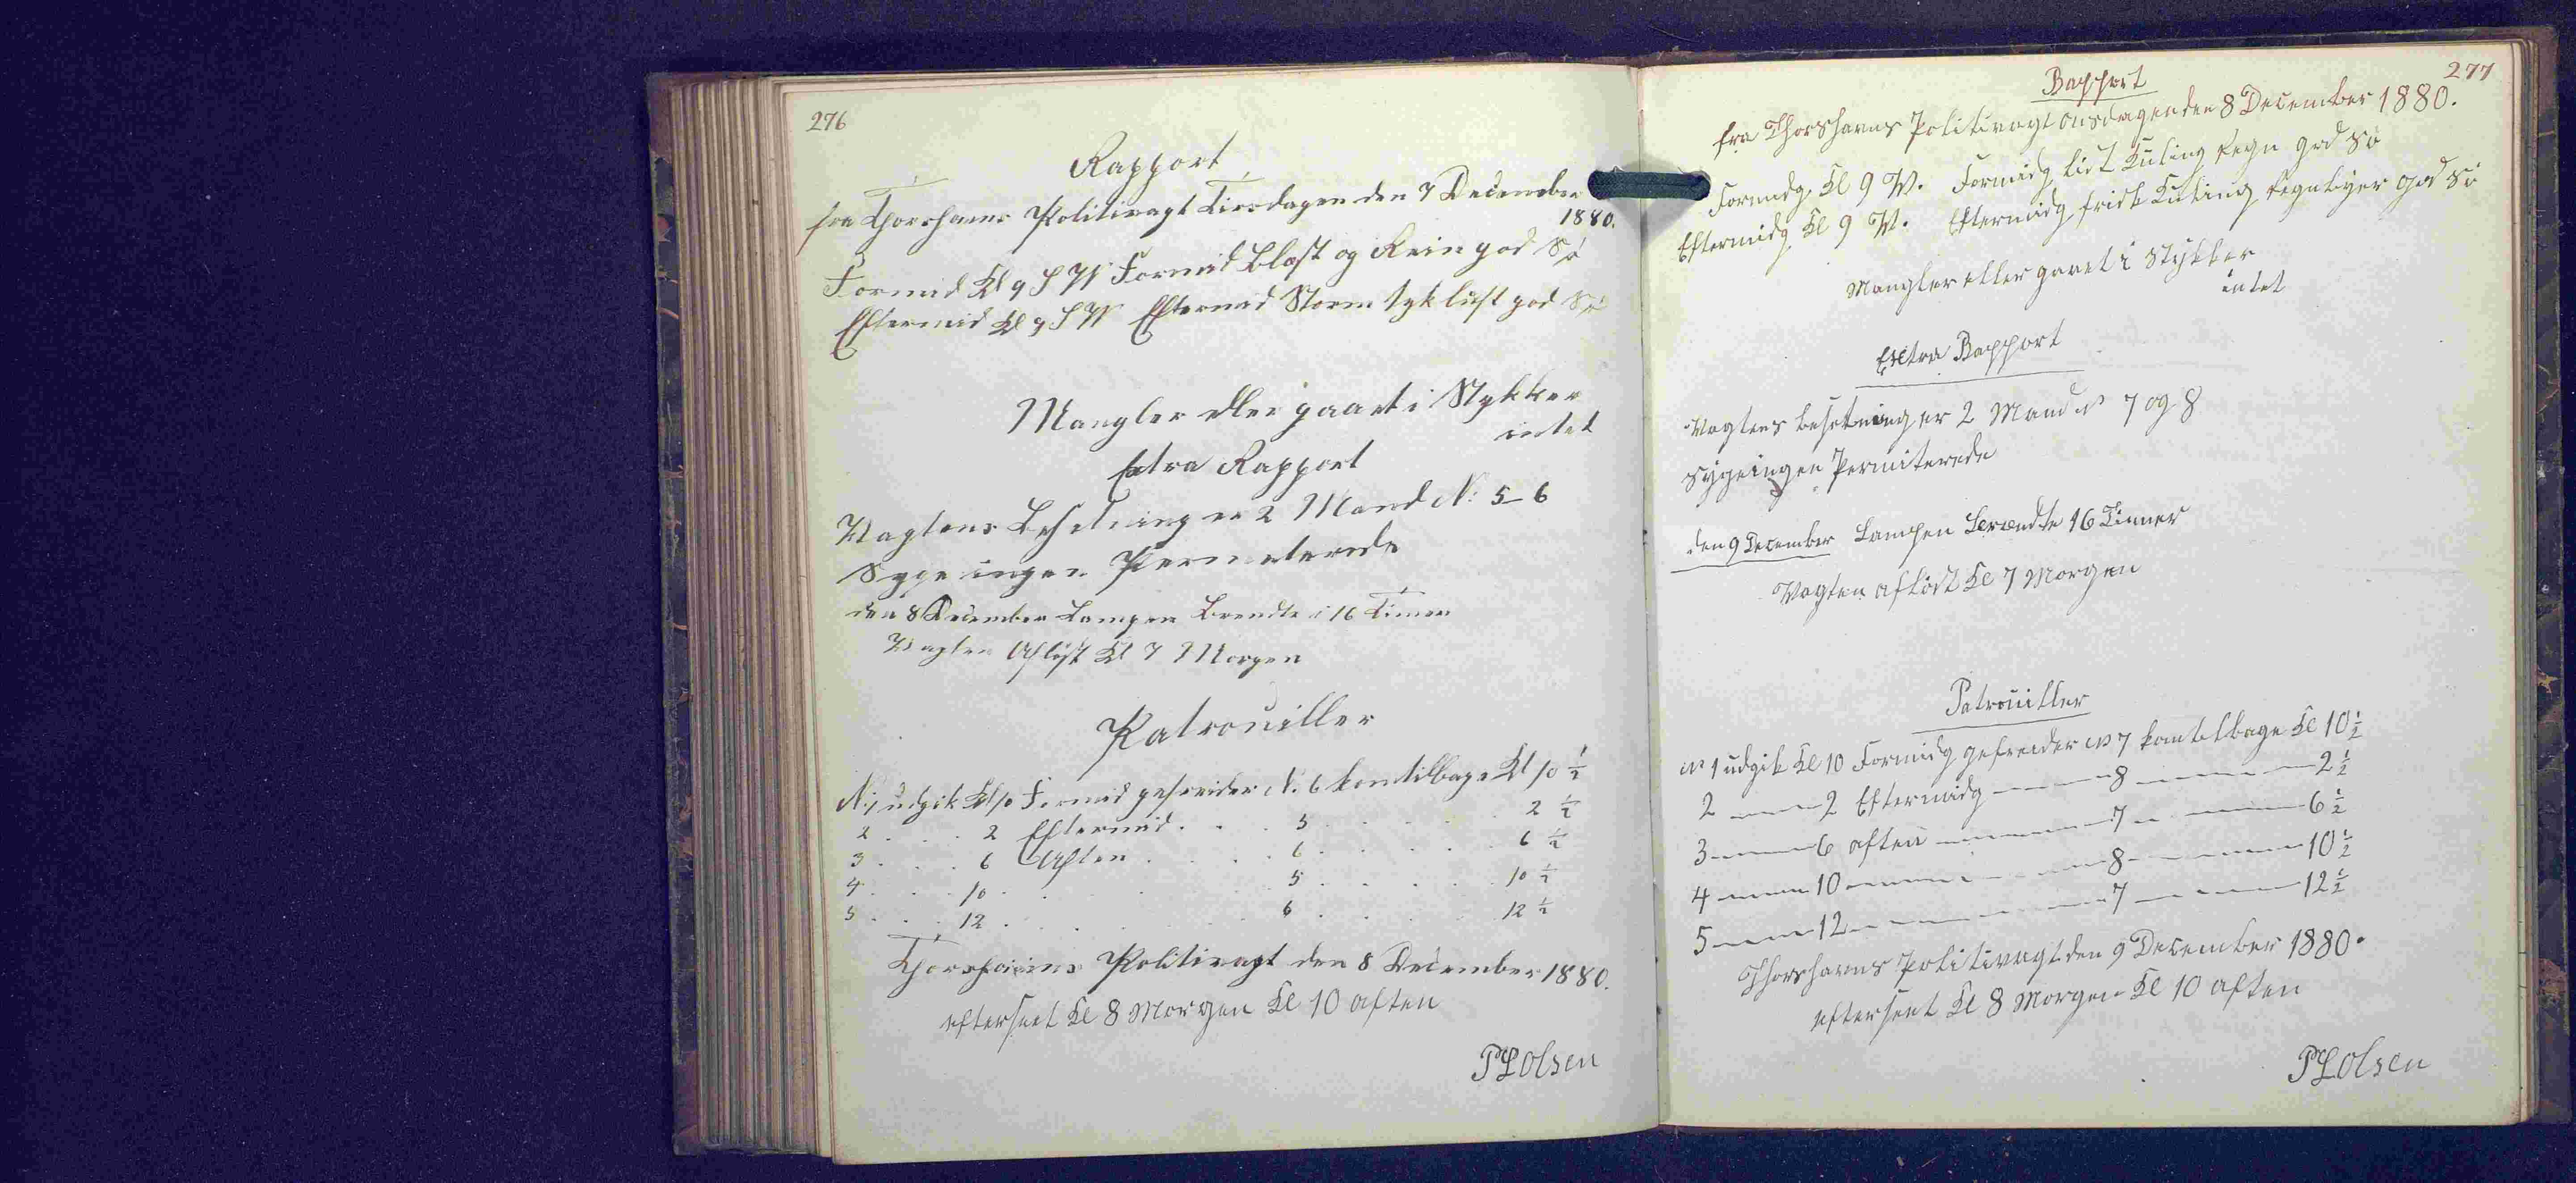 276
Rapport
fra Thorshavns Politivagt Tirsdagen den 7 December
1880.
Formid Kl 9 S W Formid Blæst og Rein god Sø
Eftermid Kl 9 S W Eftermid Storm tyk luft god Sø
Mangler eller gaaet i Stykker
intet
Extra Rapport
Vagtens Besetning er 2 Mand N: 5-6
Syge ingen Permeterede
den 8 December Lampen Brendte i 16 Timer
Vagten Afløst Kl 7 Morgen
Patrouiller
N: 1 udgik Kl 10 Formid gefreider N. 6 kom tilbage Kl 10 ½
2 . . . 2 Eftermid . . . 5 . . . . . 2 ½
3 . . . 6 Aften . . . . 6 . . . . . 6 ½
4 . . . 10 . . . . 5 . . . . . 10 ½
5 . . . 12 . . . . 6 . . . . . 12 ½
Thorshavns Politivagt den 8 December 1880.
efterseet Kl 8 Morgen Kl 10 aften
Olsen
277
Rapport
fra Thorshavns Politivagt onsdagen den 8 December 1880.
Formidg Kl 9 W. Formidg lidt Kuling regn god Sø
Eftermidg Kl 9 W. Eftermidg frisk Kuling regnbyer god Sø
Mangler eller gaaet i Stykker
intet
Extra Rapport
Vagtens besetning er 2 Mand No 7 og 8
Syge ingen Permiterede
den 9 December Lampen Brændte 16 Timer
Vagten afløst Kl 7 Morgen
Patrouiller
No 1 udgik Kl 10 Formidg gefreider No 7 kom tilbage Kl 10 ½
2 —— 2 Eftermidg —— 8 —— 2 ½
3 —— 6 aften —— 7 —— 6 ½
4 —— 10 —— 8 —— 10 ½
5 —— 12 —— 7 —— 12 ½
Thorshavns Politivagt den 9 December 1880.
efterseet Kl 8 Morgen Kl 10 aften
Olsen